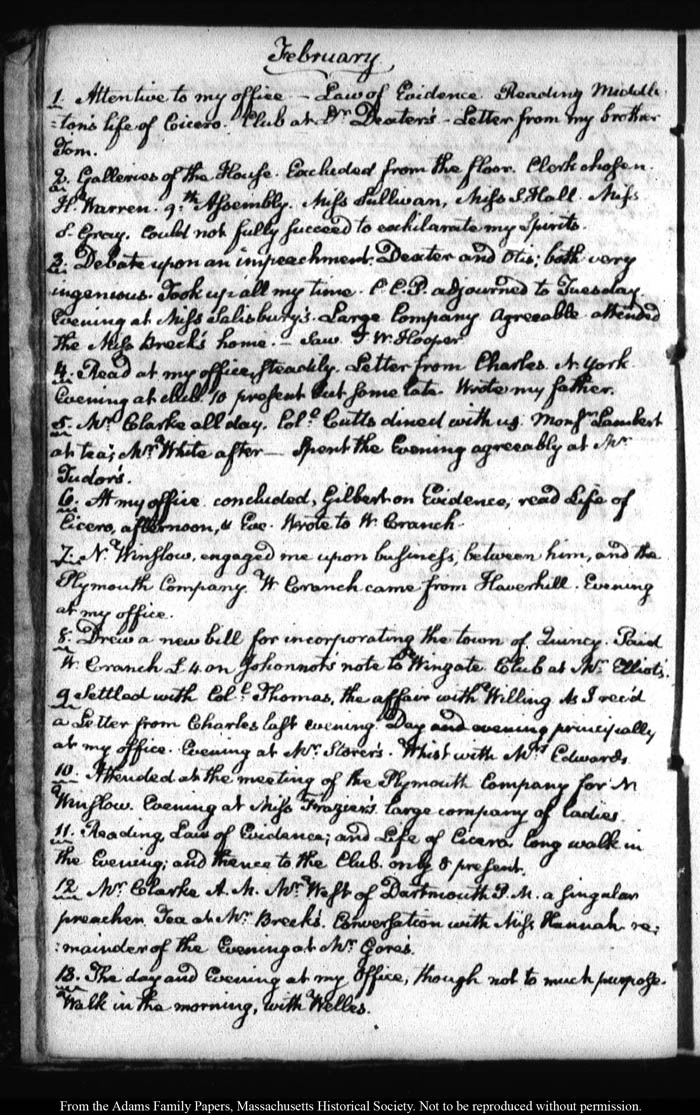 February
1. Attentive to my office — Law of Evidence. Reading Middle-
=ton's life of Cicero. Club at Dr. Dexter's — Letter from my brother
Tom.
2. Galleries of the House. Excluded from the floor. Clerk chosen.
H. Warren. 9.th Assembly. Miss Sullivan, Miss S. Hall. Miss
S. Gray. Could not fully succeed to exhilarate my Spirits.
3. Debate upon an impeachment. Dexter and Otis; both very
ingenious. Took up all my time. C. C. P. adjourned to Tuesday.
Evening at Miss Salisbury's. Large Company agreeable attended
the Miss Breck's home. — Saw J. W. Hooper
4. Read at my office, steadily. Letter from Charles. N. York.
Evening at club. 10 present but some late. Wrote my father.
5. Mr. Clarke all day. Col.o Cutts dined with us. Monsr. Lambert
at tea; Mr. White after — Spent the Evening agreeably at Mr.
Tudor's.
6. At my office. concluded, Gilbert on Evidence, read Life of
Cicero, afternoon, & Eve. Wrote to W. Cranch.
7. N. Winslow, engaged me upon business, between him, and the
Plymouth Company. W. Cranch came from Haverhill. Evening
at my office.
8. Drew a new bill for incorporating the town of Quincy. Paid
W. Cranch £.4 on Johonnot's note to Wingate. Club at Mr. Elliot's.
9 Settled with Col.o Thomas, the affair with Willing. As I rec'd
a Letter from Charles last evening. Day and evening principally
at my office. Evening at Mr. Storer's. Whist with Mrs. Edwards.
10. Attended at the meeting of the Plymouth Company for N
Winslow. Evening at Miss Frazier's. large company of ladies.
11. Reading Law of Evidence; and Life of Cicero. long walk in
the Evening; and thence to the Club. only 8 present.
12. Mr. Clarke A. M. Mr. West of Dartmouth P. M. a singular
preacher. Tea at Mr. Breck's. Conversation with Miss Hannah. re:
:mainder of the Evening at Mr. Gore's.
13. The day and Evening at my Office, though not to much purpose.
Walk in the morning, with Welles.
From the Adams Family Papers, Massachusetts Historical Society. Not to be reproduced without permission.